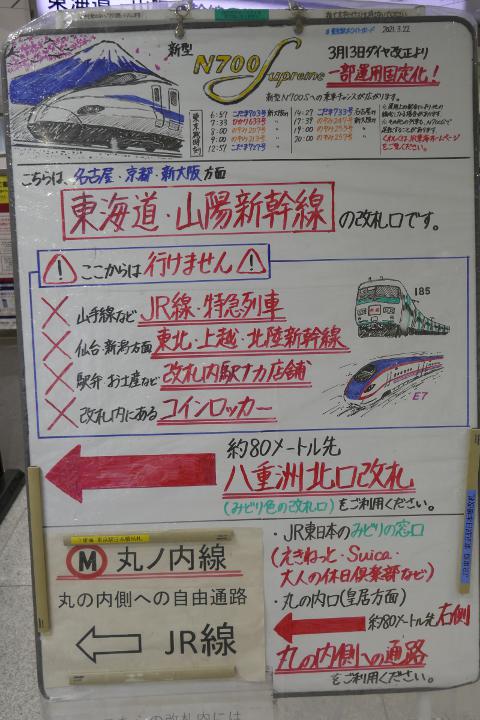 東海道・山陽新幹線
2021.3.22
新型 N700Supreme
3月13日ダイヤ改正より
一部運用固定化!
新型N700Sへの乗車チャンスが広がります。
東京発時刻
6:57 こだま703号 新大阪行
7:33 ひかり633号
9:00
12:57 こだま727号
14:27 名古屋行
17:39
19:00
20:00
くわしくはJR東海ホームページをご覧ください。
こちらは、名古屋・京都・新大阪方面
東海道・山陽新幹線の改札口です。
ここからは行けません
185
山手線など JR線・特急列車
仙台・新潟方面 東北・上越・北陸新幹線
駅弁 お土産など 改札内駅ナカ店舗
E7
改札内にある コインロッカー
約80メートル先
八重洲北口改札
(みどり色の改札口)をご利用ください。
M 丸ノ内線
丸の内側への自由通路
JR線
・JR東日本のみどりの窓口
(えきねっと・Suica・
大人の休日倶楽部など)
・丸の内口(皇居方面)
約80メートル先右側
丸の内側への通路
をご利用ください。